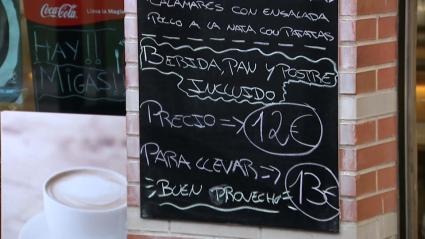 Coca-Cola
Lleva la Magia
HAY..
MIGAS!
CALAMARES CON ENSALADA
POLLO A LA NATA CON PATATAS
BEBIDA, PAN Y POSTRE
INCLUIDO
PRECIO => 12€
PARA LLEVAR => 13€
BUEN PROVECHO